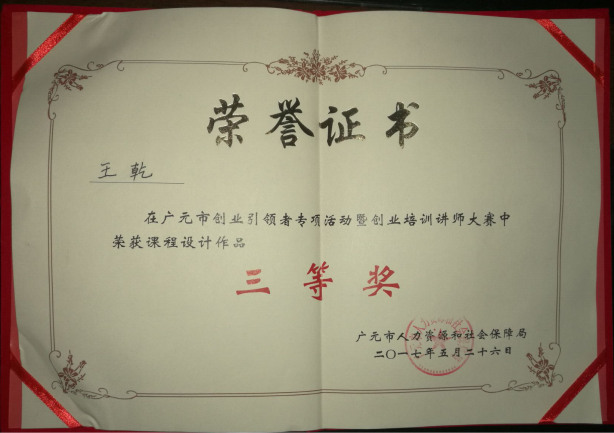 荣誉证书
王乾
在广元市创业引领者专项活动暨创业培训讲师大赛中
荣获课程设计作品
三等奖
广元市人力资源和社会保障局
二〇一七年五月二十六日